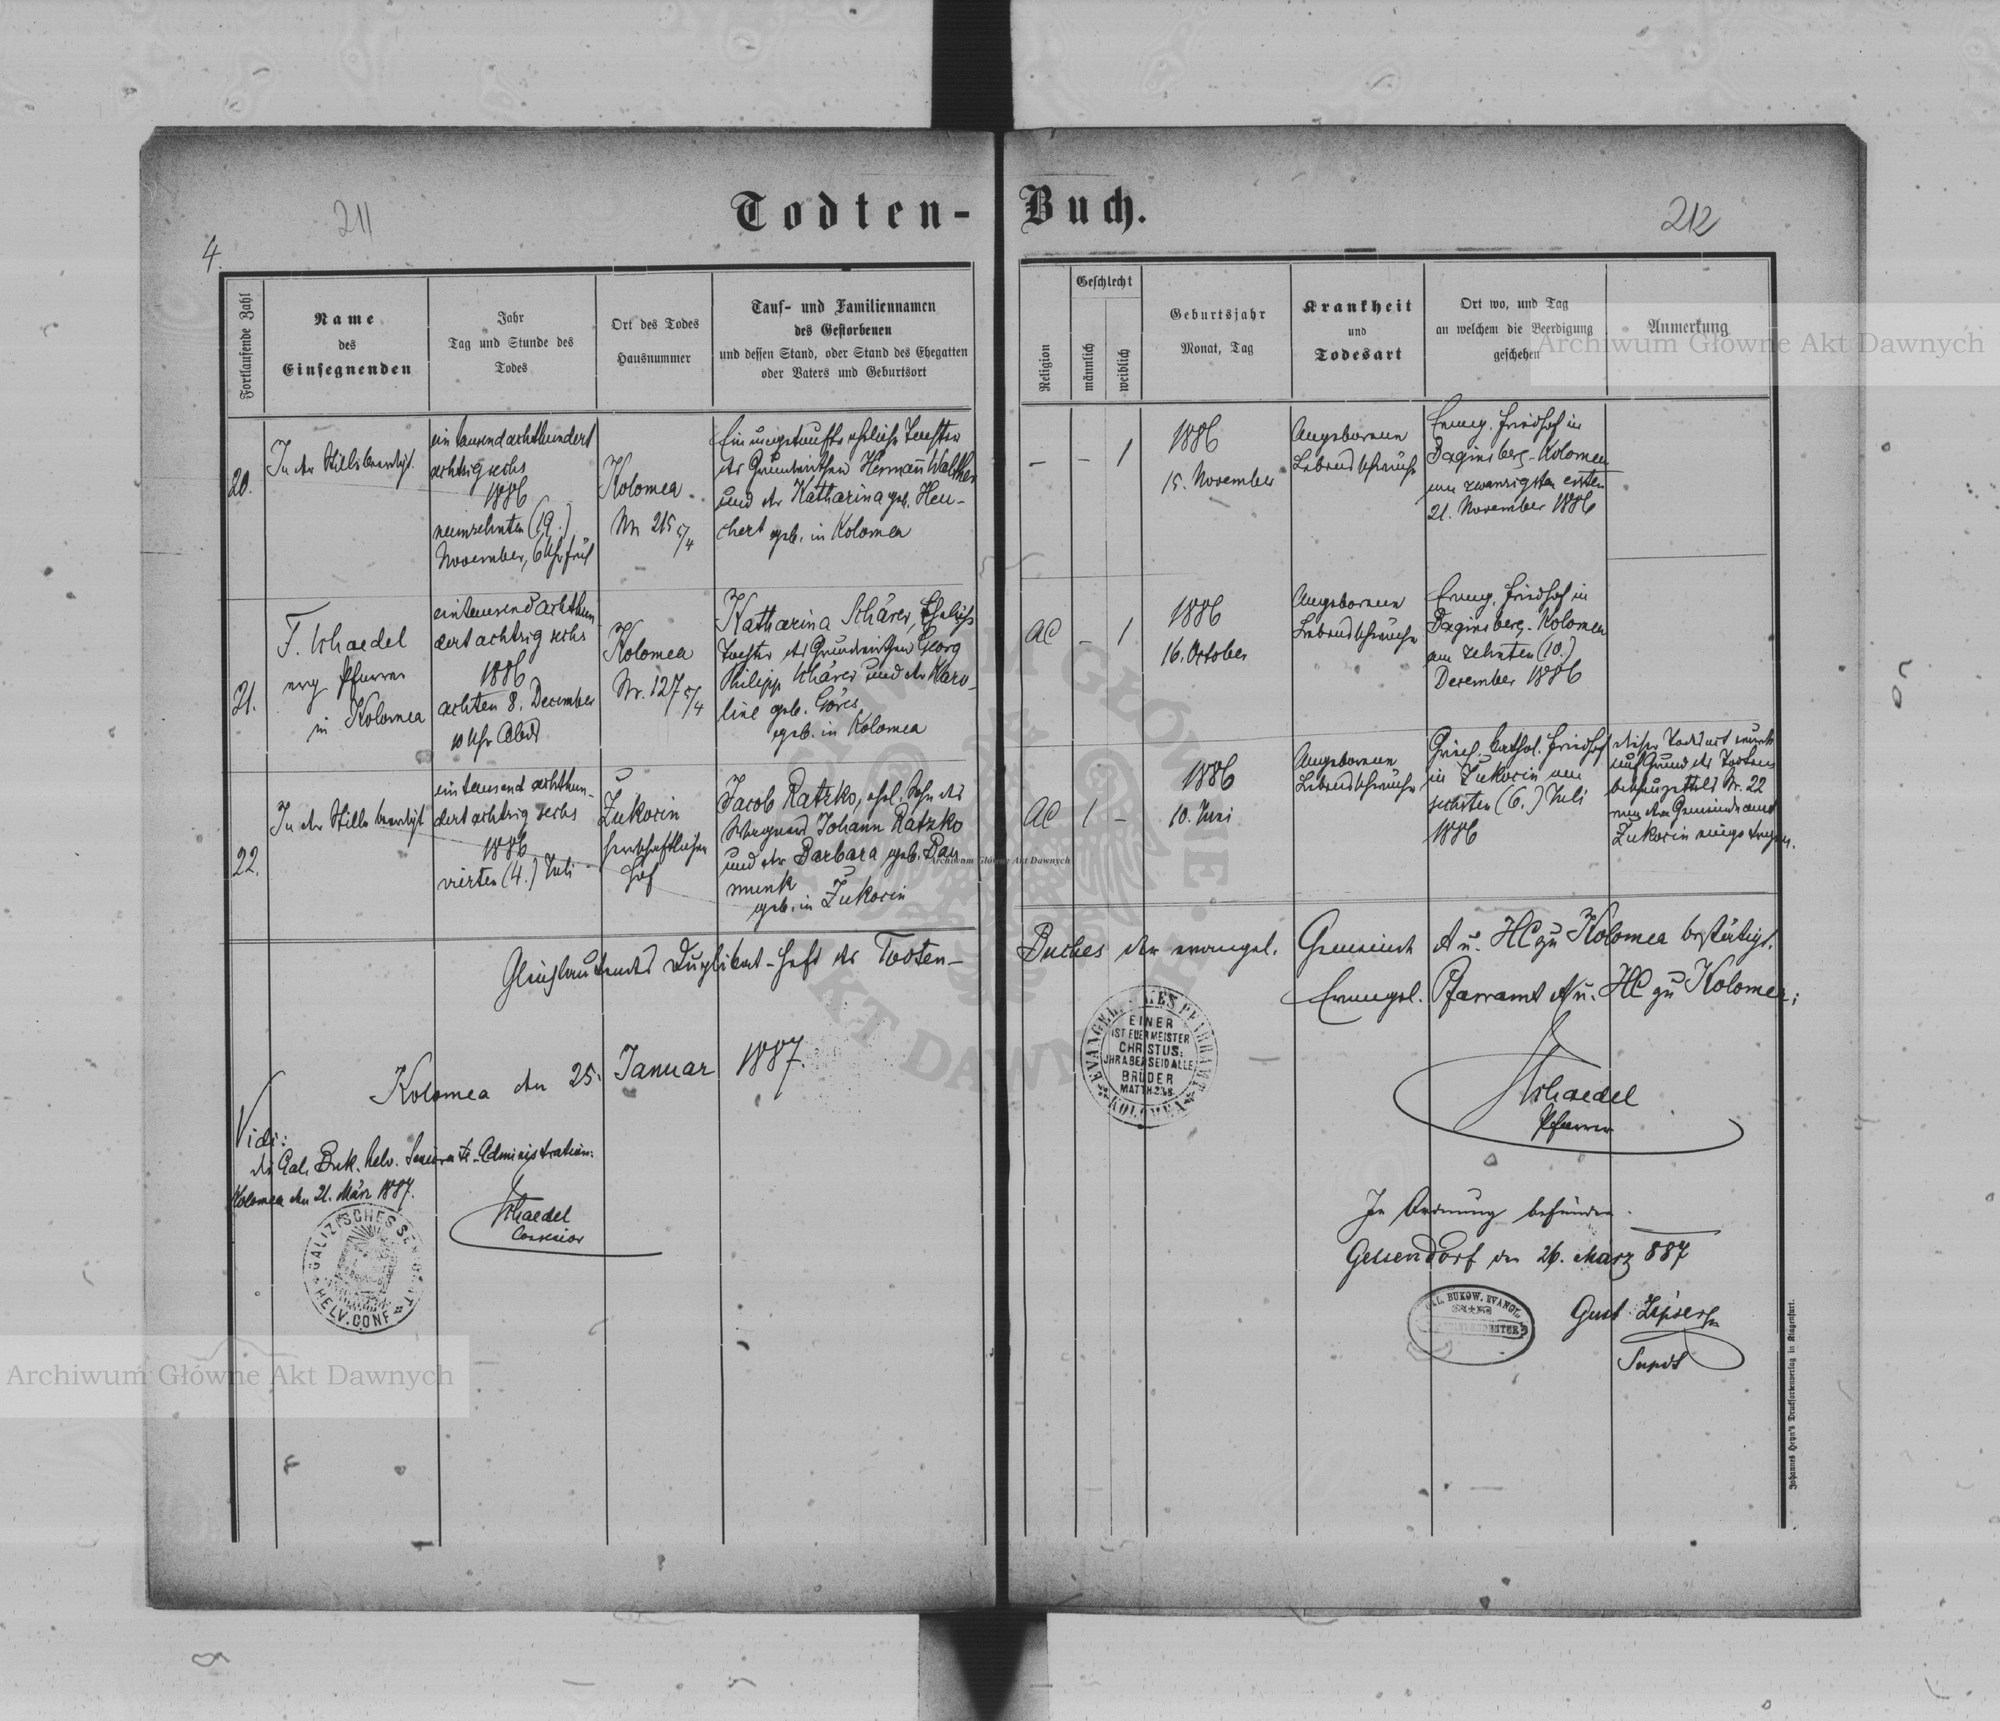 Todten-Buch.
211
212
4.
Fortlaufende Zahl
Name
des
Einsegnenden
Jahr
Tag und Stunde des
Todes
Ort des Todes
Hausnummer
Tauf- und Familiennamen
des Gestorbenen
und dessen Stand, oder Stand des Ehegatten
oder Vaters und Geburtsort
Religion
Geschlecht
männlich
weiblich
Geburtsjahr
Monat, Tag
Krankheit
und
Todesart
Ort wo, und Tag
an welchem die Beerdigung
geschehen
Anmerkung
20.
In der Stille beerdigt.
ein tausend achthundert
achtzig sechs
1886
neunzehnten (19.)
November, 6 Uhr früh
Kolomea
Nr. 215 5/4
Ein ungetaufte eheliche Tochter
des Grundwirthen Herman Walther
und der Katharina geb. Heu-
chert geb. in Kolomea
–
–
1
1886
15. November
Angeborene
Lebensschwäche
Evang. Friedhof in
Baginsberg-Kolomea
am zwanzigsten ersten
21. November 1886
21.
F. Schaedel
evg Pfarrer
in Kolomea
eintausend achthun-
dert achtzig sechs
1886
achten 8. December
10 Uhr Abds
Kolomea
Nr. 127 5/4
Katharina Schärer, Eheliche
Tochter des Grundwirthen Georg
Philipp Schärer und der Karo-
line geb. Göres
geb. in Kolomea
AC
–
1
1886
16. October
Angeborene
Lebensschwäche
Evang. Friedhof in
Baginsberg-Kolomea
am zehnten (10.)
December 1886
22.
In der Stille beerdigt
ein tausend achthun-
dert achtzig sechs
1886
vierten (4.) Juli
Zukocin
herrschaftlicher
Hof
Jacob Ratzko, ehel. Sohn des
Wagners Johann Ratzko
und der Barbara geb. Dau
munk
geb. in Zukocin
AC
1
–
1886
10. Mai
Angeborene
Lebensschwäche
Griech. kathol. Friedhof
in Zukocin am
sechsten (6.) Juli
1886
dieser Todesact wurde
auf Grund des Todten
beschauzettels Nr. 22
von dem Gemeindeamt
Zukocin eingetragen.
Gleichlautendes Duplikat-Heft des Todten-
Buches der evangel. Gemeinde A u. HC zu Kolomea bestätigt.
Evangel. Pfarramt A u. HC zu Kolomea:
Kolomea den 25. Januar 1887.
EVANGEL. PFARRAMT
KOLOMEA
EINER
IST EUER MEISTER
CHRISTUS:
IHR ABER SEID ALLE
BRÜDER
MATTH. 23,8
Schaedel
Pfarrer
Vidi:
die Gal. Buk. helv. Seniorats-Administration:
Kolomea den 21. März 1887.
Schaedel
Consenior
GALIZISCHES SENIORAT
HELV. CONF.
In Ordnung befunden.
Gelsendorf den 26. März 887
GAL. BUKOW. EVANGL.
Gust. Zipser
Supdt
Johannes Heyn's Drucksortenverlag in Klagenfurt.
Archiwum Główne Akt Dawnych
Archiwum Główne Akt Dawnych
Archiwum Główne Akt Dawnych